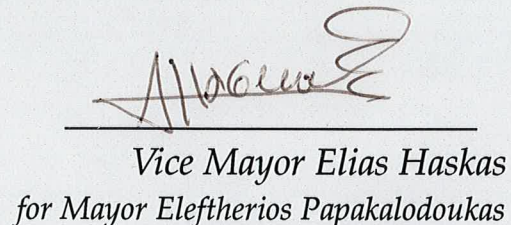 Vice Mayor Elias Haskas
for Mayor Eleftherios Papakalodoukas